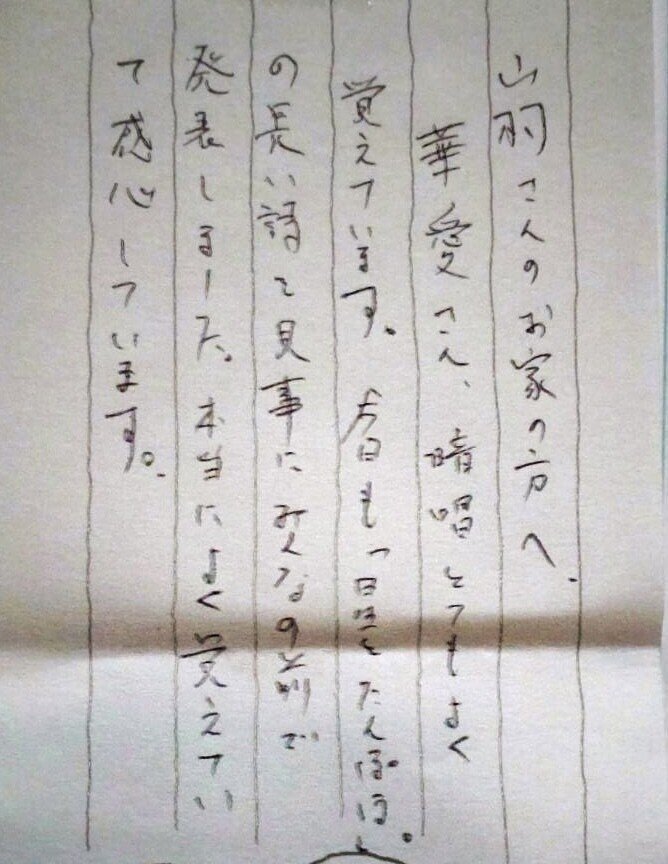 山羽さんのお家の方へ、
華愛さん、暗唱とてもよく
覚えています。今日も「星とたんぽぽ」
の長い詩を見事にみんなの前で
発表しました。本当によく覚えてい
て感心しています。